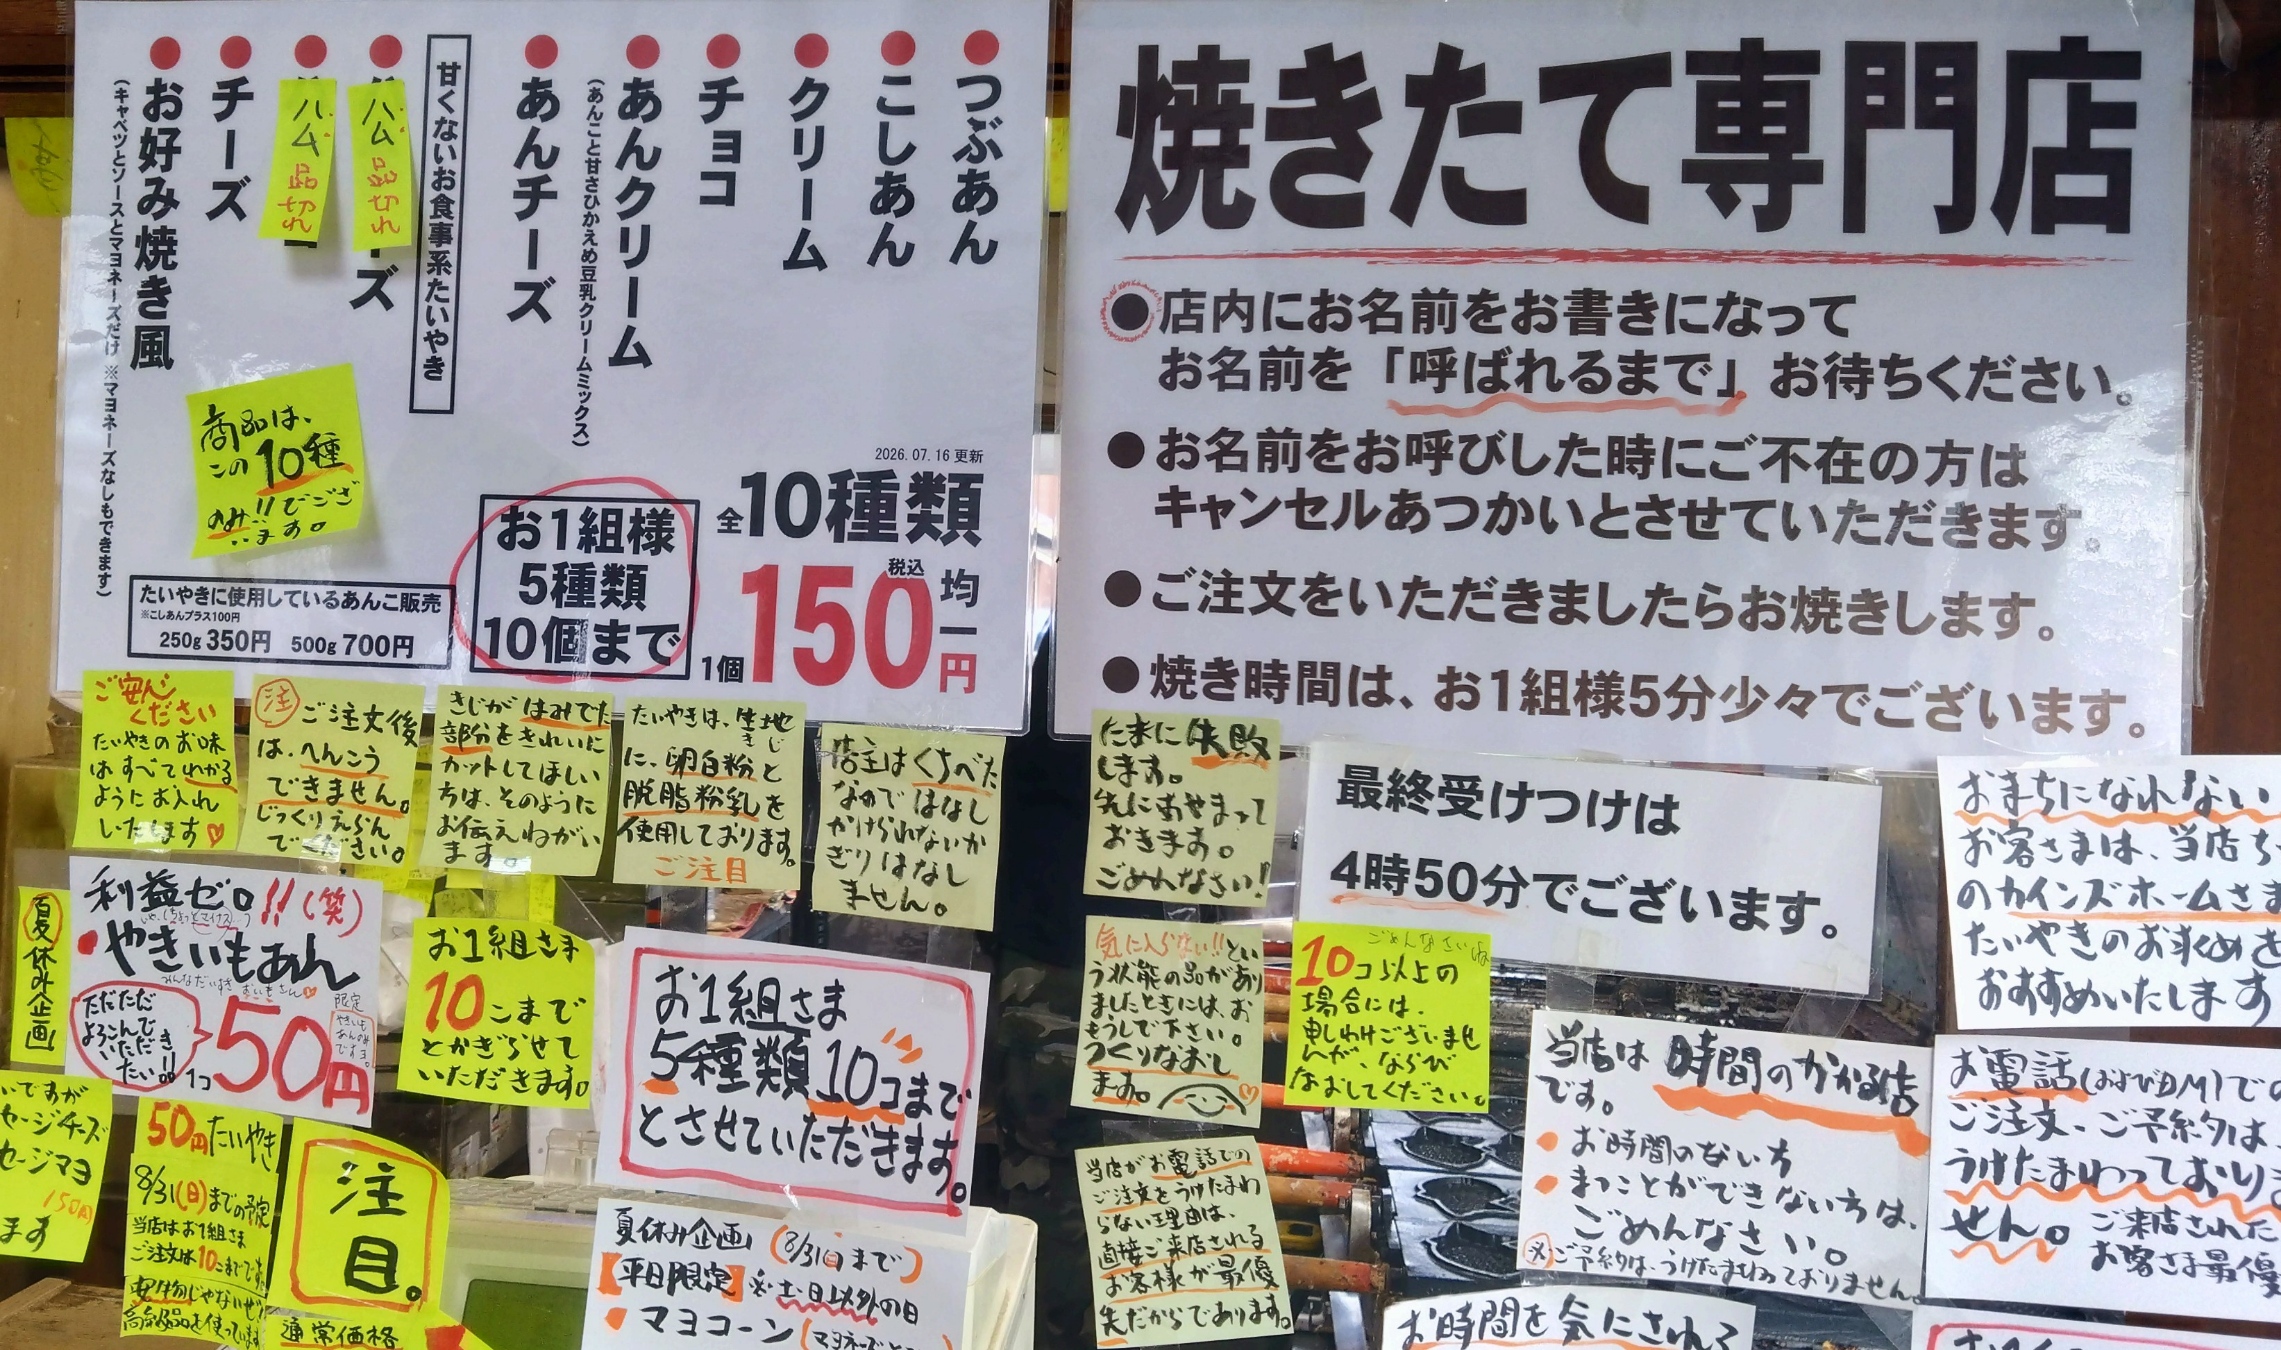 焼きたて専門店
●店内にお名前をお書きになって
お名前を「呼ばれるまで」お待ちください。
●お名前をお呼びした時にご不在の方は
キャンセルあつかいとさせていただきます。
●ご注文をいただきましたらお焼きします。
●焼き時間は、お1組様5分少々でございます。
●つぶあん
●こしあん
●クリーム
●チョコ
●あんクリーム
(あんこと甘さひかえめ豆乳クリームミックス)
●あんチーズ
甘くないお食事系たいやき
ハム品切れ
ーズ
ハム品切れ
●チーズ
●お好み焼き風
(キャベツとソースとマヨネーズだけ ※マヨネーズなしもできます)
商品は、
この10種
のみ!!でござ
います。
2026.07.16更新
全10種類
税込
均一
1個150円
お1組様
5種類
10個まで
たいやきに使用しているあんこ販売
※こしあんプラス100円
250g350円 500g700円
ご安心
ください
たいやきのお味
はすべてわかる
ようにお入れ
いたします♡
注
ご注文後
は、へんこう
できません。
じっくりえらん
でください。
きじがはみでた
部分をきれいに
カットしてほしい
方は、そのように
お伝えねがい
ます。
たいやきは、生地
きじ
に、卵白粉と
脱脂粉乳を
使用しております。
ご注目
店主はくちべた
なのではなし
かけられないか
ぎりはなし
ません。
たまに失敗
します。
先にあやまって
おきます。
ごめんなさい!
最終受けつけは
4時50分でございます。
おまちになれない
お客さまは、当店ち
のカインズホームさま
たいやきのお求めを
おすすめいたします
夏休み企画
利益ゼロ!!(笑)
やきいもあん
みんなだいすきおいもさん♡
ただただ
よろこんで
いただき
たい!!
1コ50円
限定
やきいも
あんのみ
ですヨ。
お1組さま
10こまで
とかぎらせて
いただきます。
お1組さま
5種類10コまで
とさせていただきます。
気に入らない!!とい
う状態の品があり
ましたときには、お
もうしで下さい。
つくりなおし
ます。
ごめんなさいね
10コ以上の
場合には、
申しわけございませ
んが、ならび
なおしてください。
当店は時間のかかる店
です。
・お時間のない方
・まつことができない方は、
ごめんなさい。
※ご予約は、うけたまわっておりません。
お電話(およびDM)での
ご注文、ご予約は、
うけたまわっておりま
せん。ご来店された
お客さま最優
いですが
セージチーズ
セージマヨ
150円
ます
50円たいやき
8/31(日)までの予定
当店はお1組さま
ご注文は10こまでです。
安物じゃないぜ!
高級品を使っています
注
目。
通常価格
夏休み企画(8/31日まで)
【平日限定】※土・日以外の日
・マヨコーン
当店がお電話での
ご注文をうけたまわ
らない理由は、
直接ご来店される
お客様が最優
先だからであります。
お時間を気にされ